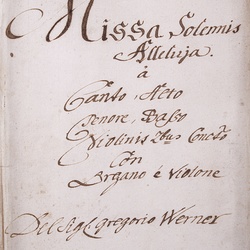 Missa Solemis
Alleluja.
à
Canto, Alto
Tenore, Basso
Violinis 2bus Concto
Con
Organo è Violone
Del Sigl Gregorio Werner